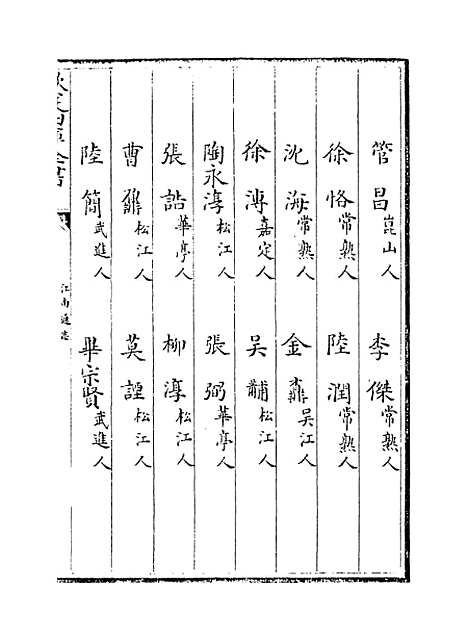 管昌崑山人　李傑常熟人
徐恪常熟人　陸潤常熟人
沈海常熟人　金鼐吳江人
徐溥嘉定人　吳黼松江人
陶永淳松江人　張弼華亭人
張誥華亭人　柳淳松江人
曹鼐松江人　莫諲松江人
陸簡武進人　畢宗賢武進人
欽定四庫全書
江南通志